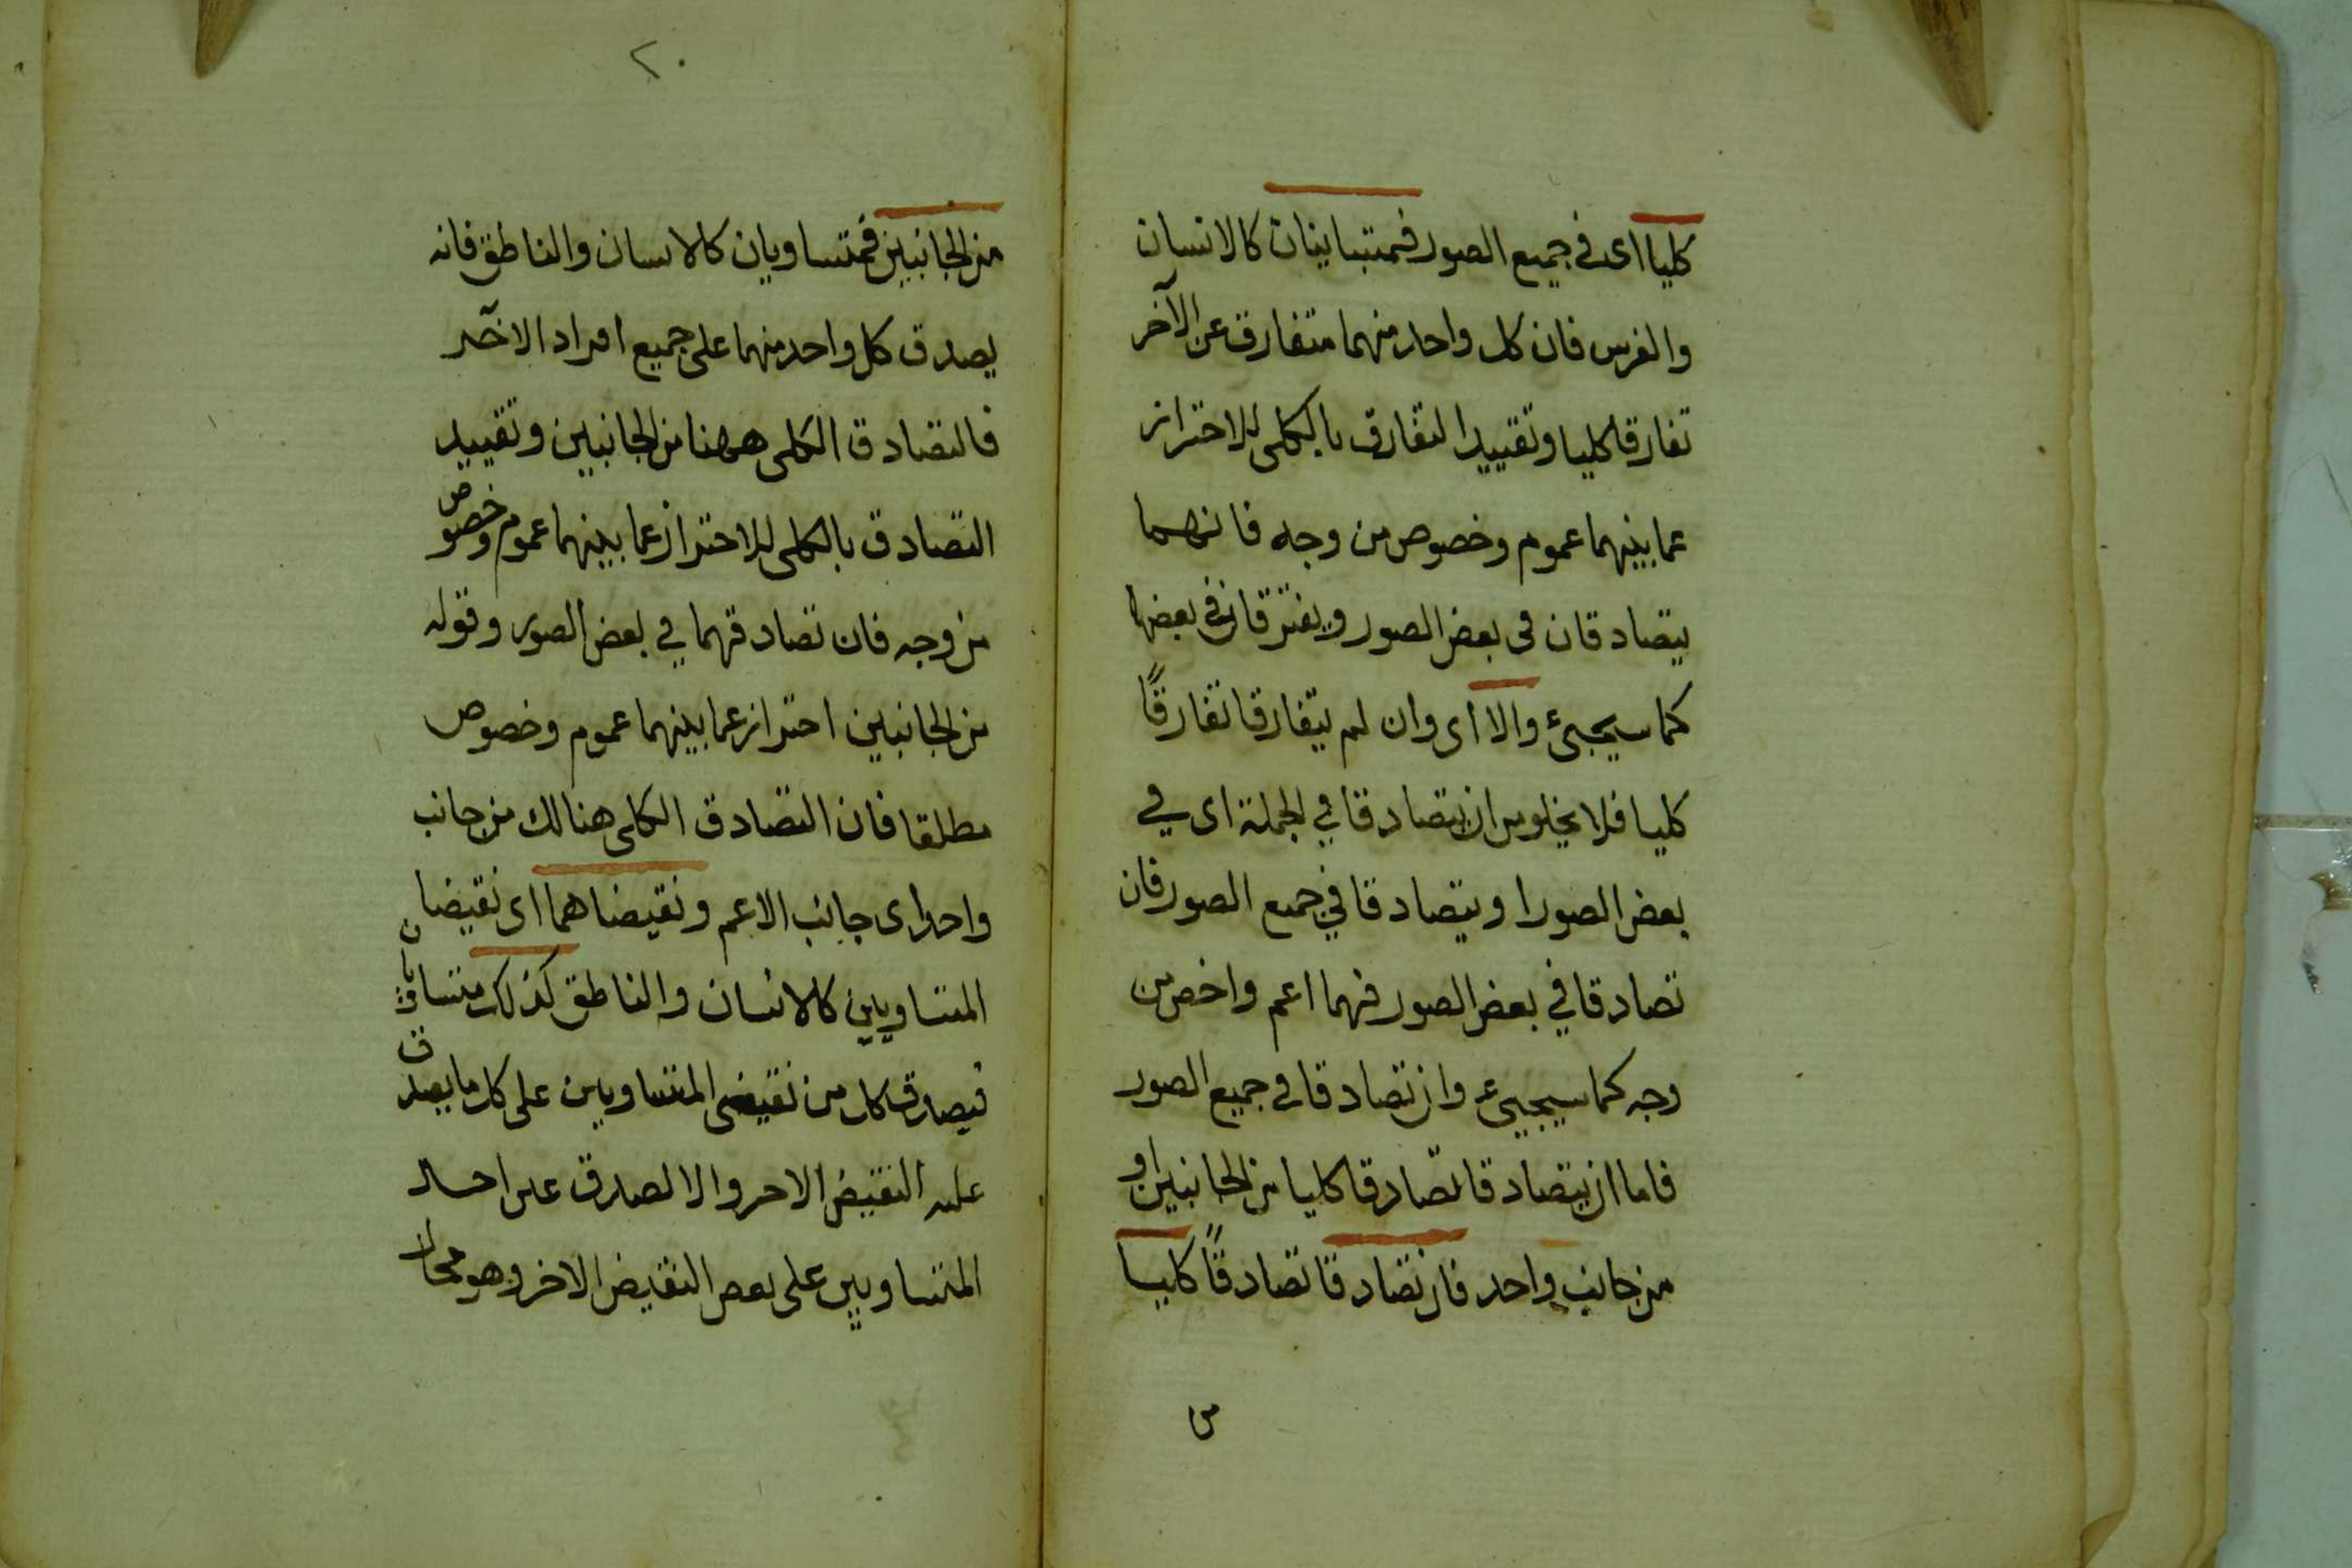 كليا اى فى جميع الصور فمتباينان كالانسان
والفرس فان كل واحد منهما متفارق عن الآخر
تفارقا كليا وتقييد التفارق بالكلى للاحتراز
عما بينهما عموم وخصوص من وجه فانهما
يتصادقان فى بعض الصور ويفترقان فى بعضها
كما سيجىء والا اى وان لم يتفارقا تفارقًا
كليا فلا يخلو من ان يتصادقا في الجملة اى في
بعض الصور او يتصادقا في جميع الصور فان
تصادقا في بعض الصور فهما اعم واخص من
وجه كما سيجيىء وان تصادقا في جميع الصور
فاما ان يتصادقا تصادقا كليا من الجانبين او
من جانب واحد فان تصادقا تصادقًا كليا
من
٢٠
من الجانبين فمتساويان كالانسان والناطق فانه
يصدق كل واحد منهما على جميع افراد الآخر
فالتصادق الكلى ههنا من الجانبين وتقييد
التصادق بالكلى للاحتراز عما بينهما عموم وخصوص
من وجه فان تصادقهما في بعض الصور وقوله
من الجانبين احتراز عما بينهما عموم وخصوص
مطلقا فان التصادق الكلى هنالك من جانب
واحد اى جانب الاعم ونقيضاهما اى نقيضا
المتساويين كالانسان والناطق كذلك متساويان
فيصدق كل من نقيضى المتساويين على كل ما يصدق
عليه النقيض الاخر والا لصدق على احد
المتساويين على بعض النقيض الاخر وهو محال